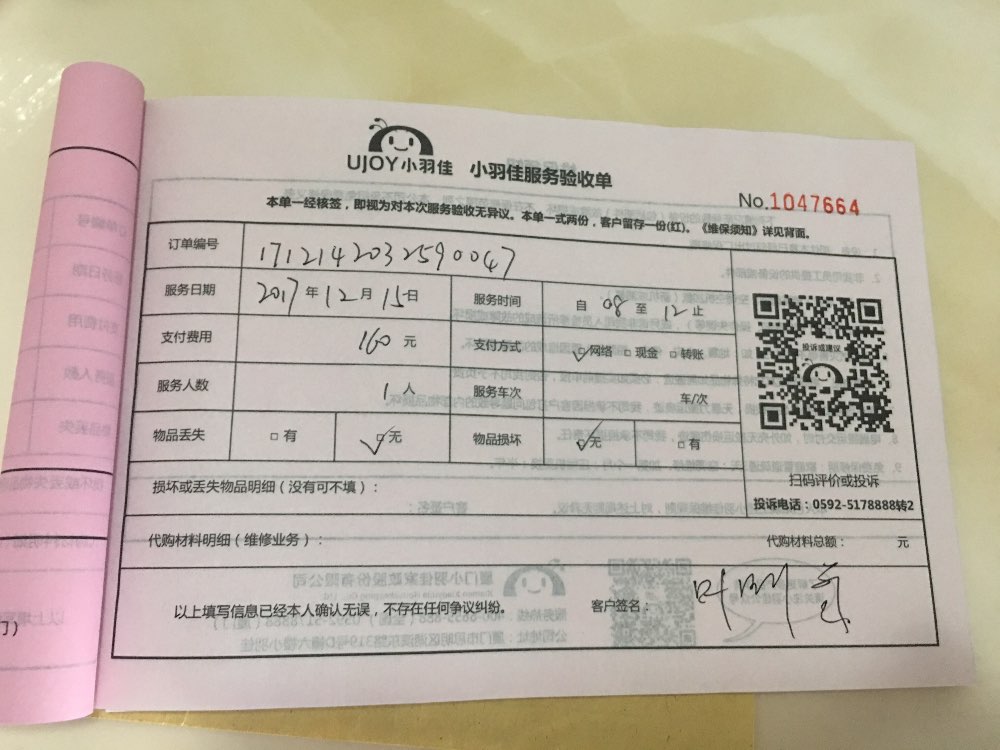 UJOY小羽佳 小羽佳服务验收单
No.1047664
本单一经核签，即视为对本次服务验收无异议。本单一式两份，客户留存一份(红)。《维保须知》详见背面。
订单编号 1712142032590047
服务日期 2017年12月15日 服务时间 自 08 至 12 止
支付费用 160 元 支付方式 ☑网络 □现金 □转账
服务人数 1人 服务车次 车/次
物品丢失 □有 ☑无 物品损坏 ☑无 □有
投诉或建议
扫码评价或投诉
投诉电话：0592-5178888转2
损坏或丢失物品明细（没有可不填）：
代购材料明细（维修业务）： 代购材料总额： 元
以上填写信息已经本人确认无误，不存在任何争议纠纷。 客户签名：